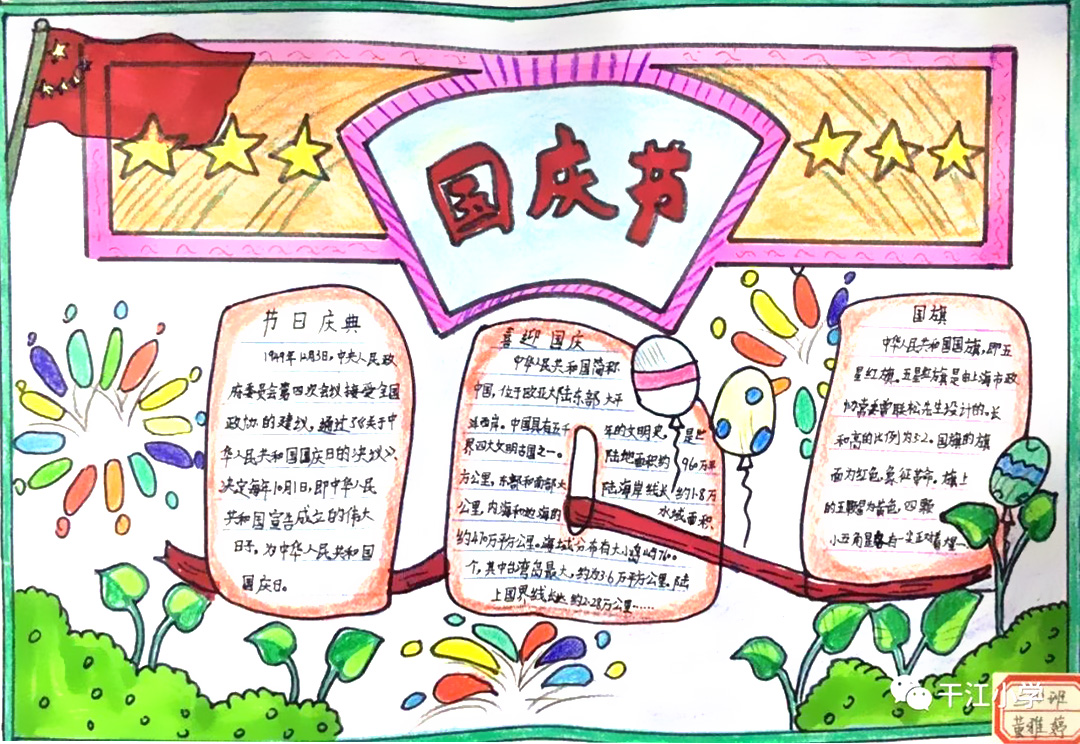 国庆节
节日庆典
1949年12月3日,中央人民政
府委员会第四次会议接受全国
政协的建议,通过了《关于中
华人民共和国国庆日的决议》,
决定每年10月1日,即中华人民
共和国宣告成立的伟大
日子,为中华人民共和国
国庆日。
喜迎国庆
中华人民共和国简称
中国,位于欧亚大陆东部 太平
洋西岸。中国具有五千 年的文明史,是世
界四大文明古国之一。 陆地面积约 960万平
方公里,东部和南部大 陆海岸线长 约1.8万
公里,内海和边海的 水域面积
约470万平方公里。海域分布有大小岛屿7600
个,其中台湾岛最大,约为3.6万平方公里,陆
上国界线长达 约2.28万公里……
国旗
中华人民共和国国旗,即五
星红旗。五星红旗是由上海市政
协常委曾联松先生设计的。长
和高的比例为3:2。国旗的旗
面为红色,象征革命。旗上
的五颗星为黄色,四颗
小五角星各有一尖正对着
干江小学
班
黄雅婷